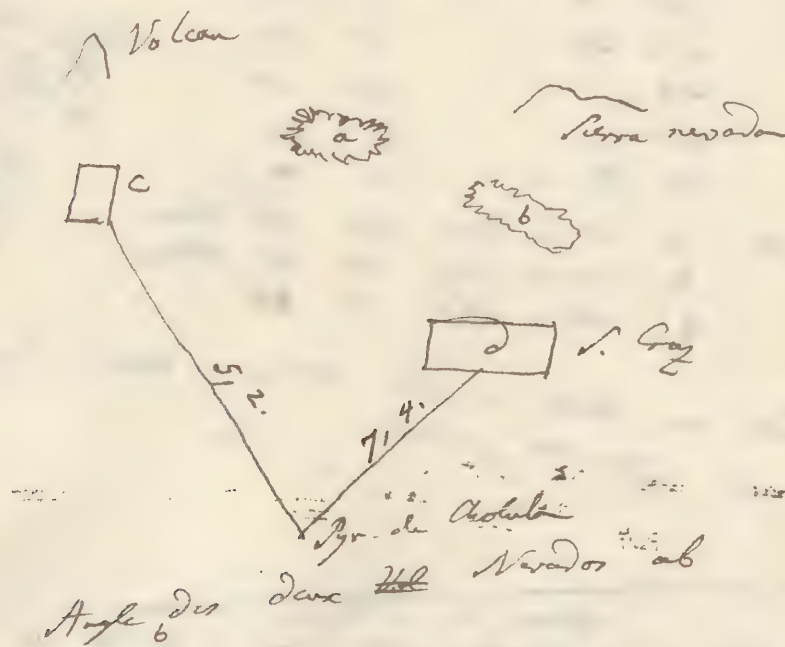 Volcan
a
Sierra nevada
C
b
d
S. Cruz
52.
71, 4.
Pyr. de Cholula
Angle des deux Nevados ab
b